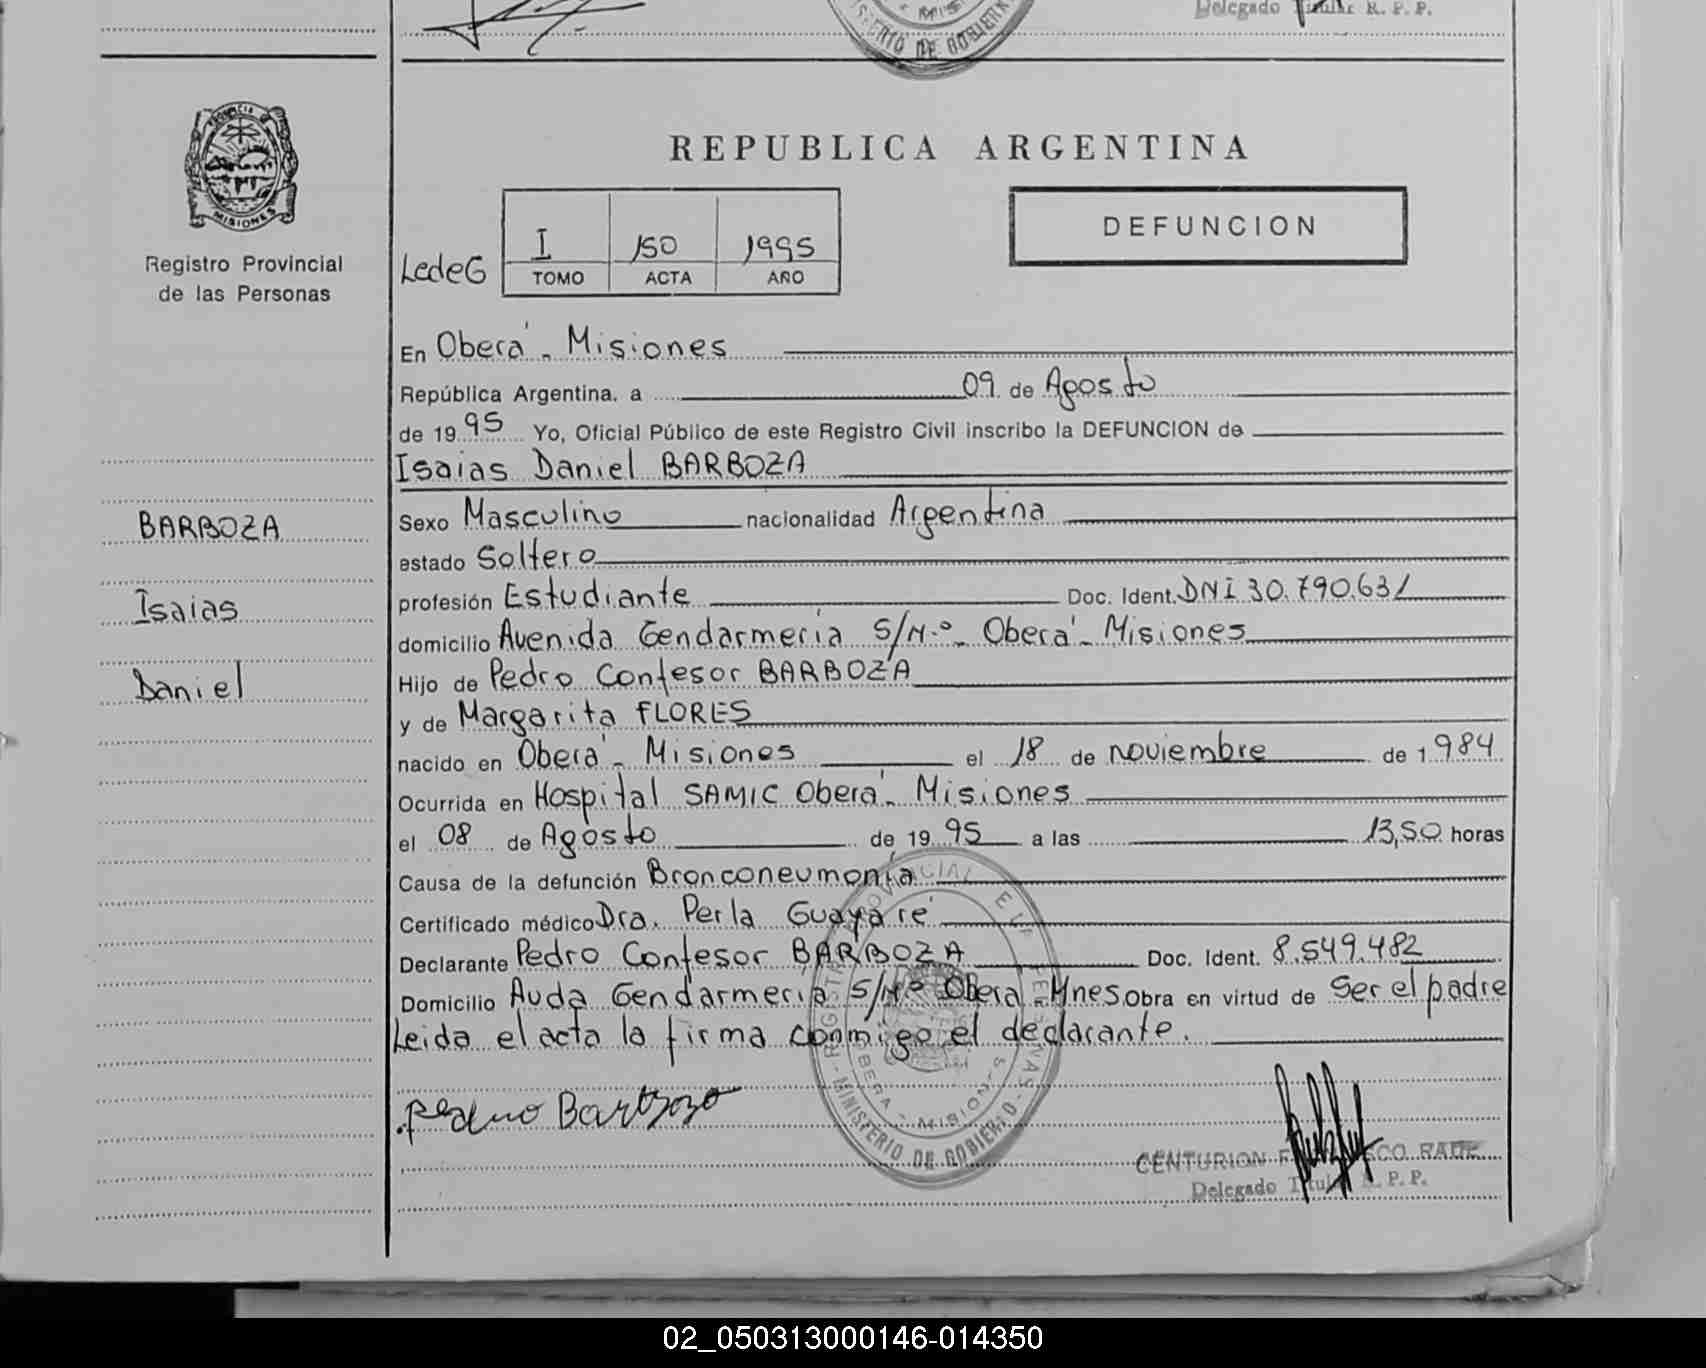 Delegado Titular R. P. P.
MINISTERIO DE GOBIERNO
REPUBLICA ARGENTINA
PROVINCIA
MISIONES
Registro Provincial
de las Personas
LedeG
I 150 1995
TOMO ACTA AÑO
DEFUNCION
En Oberá - Misiones
República Argentina, a 09 de Agosto
de 1995 Yo, Oficial Público de este Registro Civil inscribo la DEFUNCION de
Isaias Daniel BARBOZA
BARBOZA
Isaias
Daniel
Sexo Masculino nacionalidad Argentina
estado Soltero
profesión Estudiante Doc. Ident. DNI 30.790.631
domicilio Avenida Gendarmeria S/N.º - Oberá - Misiones
Hijo de Pedro Confesor BARBOZA
y de Margarita FLORES
nacido en Oberá - Misiones el 18 de noviembre de 1984
Ocurrida en Hospital SAMIC Oberá - Misiones
el 08 de Agosto de 1995 a las 13,50 horas
Causa de la defunción Bronconeumonía
Certificado médico Dra. Perla Guayaré
Declarante Pedro Confesor BARBOZA Doc. Ident. 8.549.482
Domicilio Avda Gendarmeria S/Nº Obera - Mnes Obra en virtud de Ser el padre
Leida el acta la firma conmigo el declarante.
Pedro Barboza
MINISTERIO DE GOBIERNO
OBERA - MISIONES
CENTURION
Delegado Titular R. P. P.
02_050313000146-014350